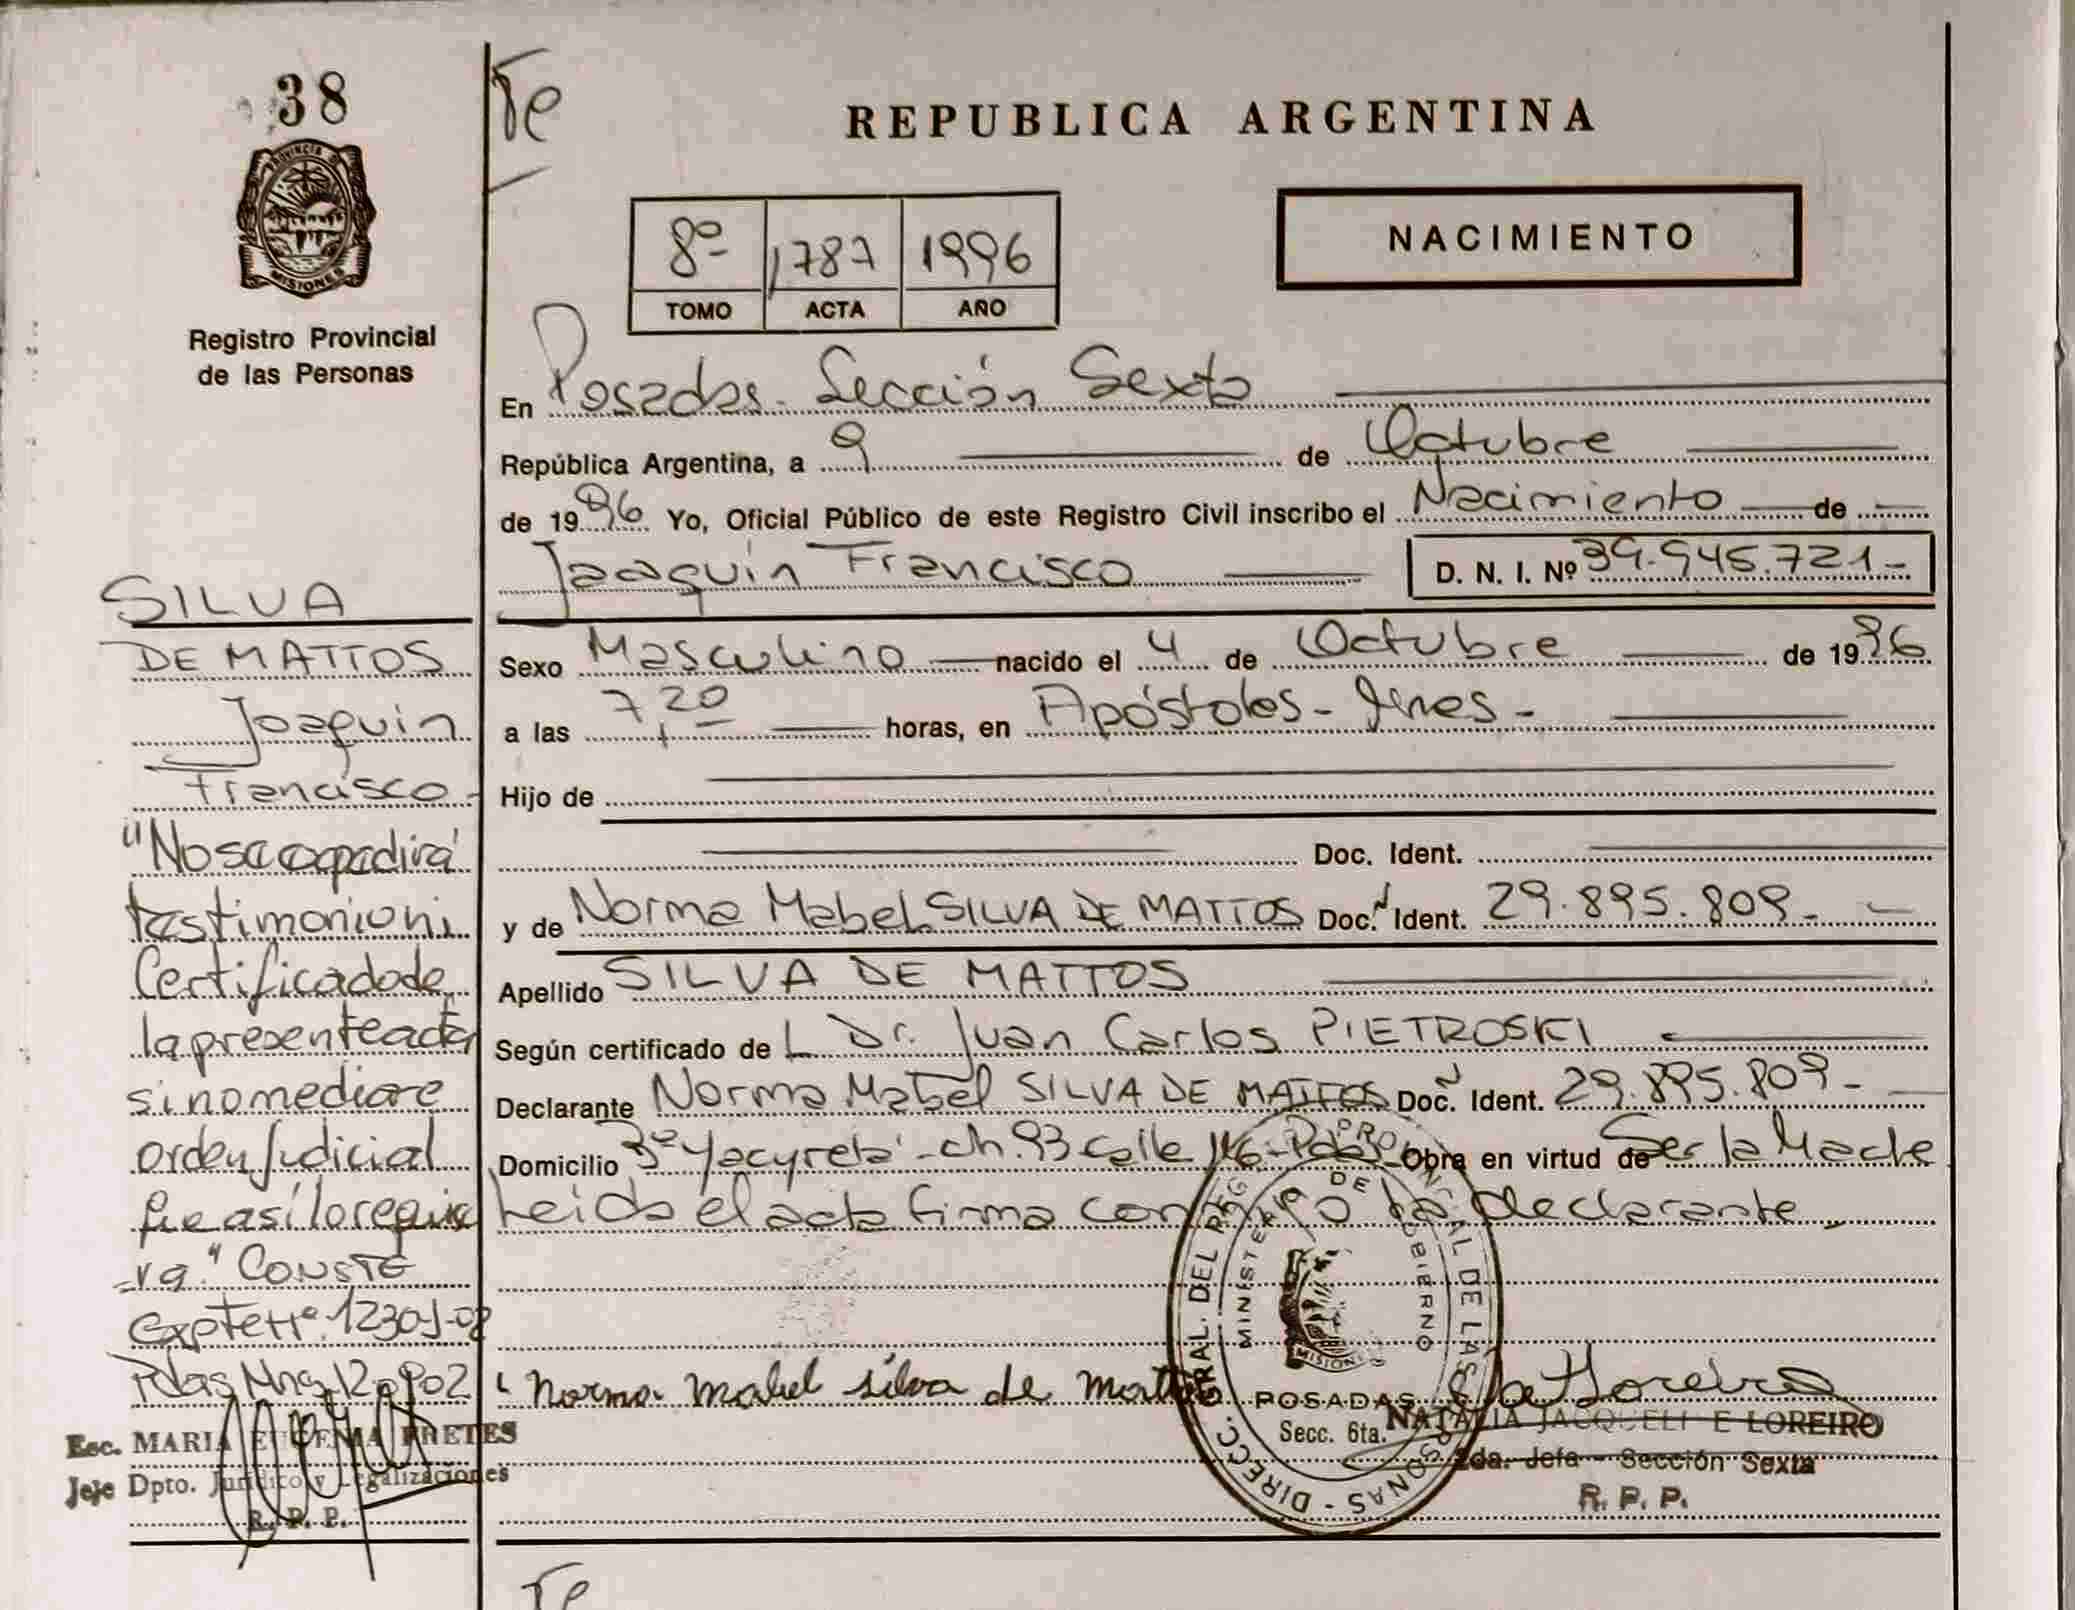 38
PROVINCIA DE
MISIONES
Registro Provincial
de las Personas
Te
REPUBLICA ARGENTINA
8º 1787 1996
TOMO ACTA AÑO
NACIMIENTO
En Posadas - Sección Sexta
República Argentina, a 9 de Octubre
de 1996 Yo, Oficial Público de este Registro Civil inscribo el Nacimiento de
Joaquín Francisco D. N. I. Nº 39.945.721-
Sexo Masculino nacido el 4 de Octubre de 1996
a las 7,20 horas, en Apóstoles - Mnes -
Hijo de
Doc. Ident.
y de Norma Mabel SILVA DE MATTOS Doc. Ident. 29.895.809-
Apellido SILVA DE MATTOS
Según certificado de L Dr. Juan Carlos PIETROSKI
Declarante Norma Mabel SILVA DE MATTOS Doc. Ident. 29.895.809-
Domicilio Bº Yacyretá - ch. 93 Calle 146 - Obra en virtud de Ser la Madre
Leida el acta firma conmigo la declarante -
Norma Mabel silva de
SILVA
DE MATTOS
Joaquín
Francisco -
"No se expedirá
testimonio ni
Certificado de
la presente acta
si no mediare
orden Judicial
que así lo requie
-ra." CONSTE
Expte Nº 1230-J-02
Pdas Mnes 12
Esc. MARIA EUGENIA PRETES
Jefe Dpto. Jurídico y Legalizaciones
R. P. P.
DIRECC. GRAL. DEL REG. PROVINCIAL DE LAS PERSONAS
MINISTERIO DE GOBIERNO
MISIONES
POSADAS
Secc. 6ta.
NATALIA JACQUELINE LOREIRO
2da. Jefa - Sección Sexta
R. P. P.
Te